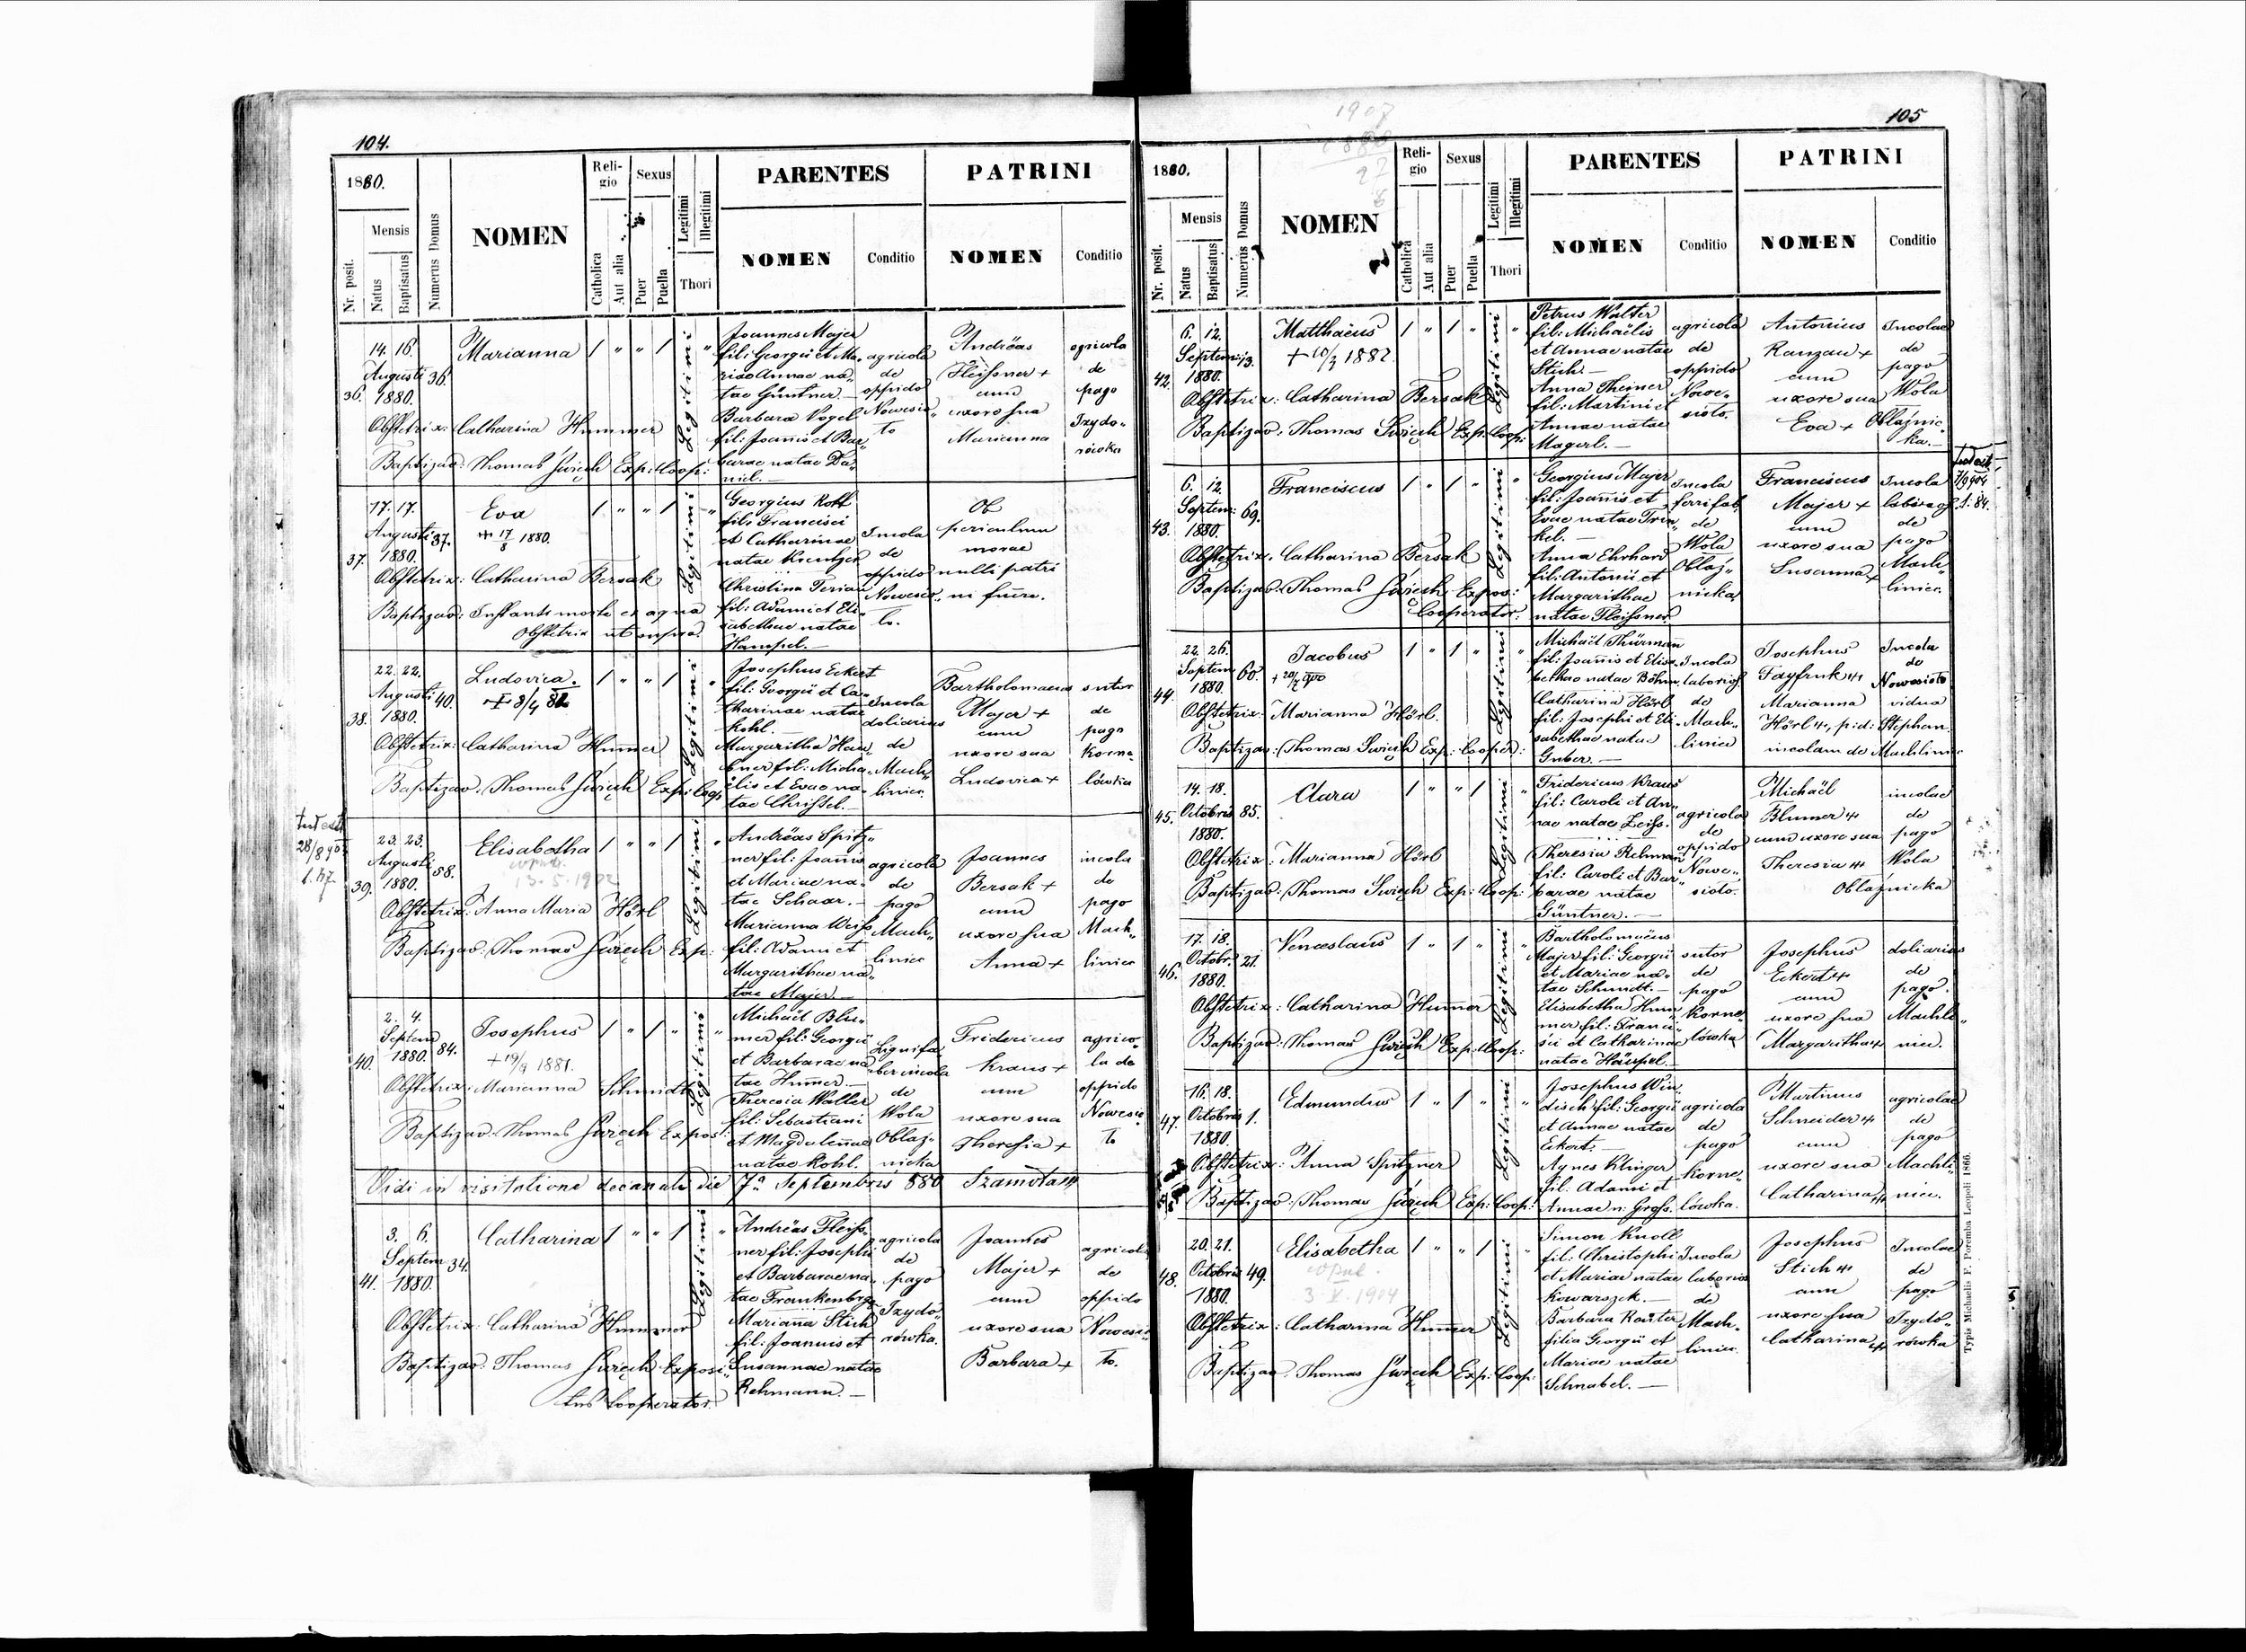 104.
1880.
Nr. posit.
Mensis
Natus
Baptisatus
Numerus Domus
NOMEN
Religio
Catholica
Aut alia
Sexus
Puer
Puella
Legitimi
Illegitimi
Thori
PARENTES
NOMEN
Conditio
PATRINI
NOMEN
Conditio
36.
14. 16.
Augusti
1880.
36.
Marianna
/ " " /
Legitimi
"
Joannes Majer
fil: Georgii et Ma-
riae Annae na-
tae Güntner. —
Barbara Vogel
fil: Joannis et Bar-
barae natae Da-
niel. —
agricola
de
oppido
Nowesio-
to
Andréas
Fleissner +
cum
uxore sua
Marianna
agricola
de
pago
Izydo-
rówka
Obstetrix: Catharina Hummer
Baptizav: Thomas Święch Exp: Coop:
37.
17. 17.
Augusti
1880.
37.
Eva
+ 17/8 1880.
/ " " /
Legitimi
"
Georgius Kohl
fil: Francisci
et Catharinae
natae Kreutzer
Christina Terian
fil: Adami et Eli-
sabethae natae
Hampel. —
Incola
de
oppido
Nowesio-
to.
Ob
periculum
morae
nulli patri-
ni fuere.
Obstetrix: Catharina Bersak
Baptizav: Instanti morte ex aqua
Obstetrix ut supra.
38.
22. 22.
Augusti
1880.
40.
Ludovica.
+ 8/4 82
/ " " /
Legitimi
"
Josephus Eckert
fil: Georgii et Ca-
tharinae natae
Kohl. —
Margaritha Heu-
bner fil: Micha-
ëlis et Evae na-
tae Christel. —
Incola
doliarius
de
Mach-
liniec
Bartholomaeus
Majer +
cum
uxore sua
Ludovica +
sutor
de
pago
Korne-
lówka
Obstetrix: Catharina Hummer
Baptizav: Thomas Święch Exp: Coop.
39.
23. 23.
Augusti
1880.
58.
Elisabetha
13.5.1902
/ " " /
Legitimi
"
Andréas Spitz-
ner fil: Joannis
et Mariae na-
tae Schaar. —
Marianna Weiss
fil: Adami et
Margarithae na-
tae Majer. —
agricola
de
pago
Mach-
liniec
Joannes
Bersak +
cum
uxore sua
Anna +
incola
de
pago
Mach-
liniec
Obstetrix: Anna Maria Hörl
Baptizav: Thomas Święch Exp:
40.
2. 4.
Septemb
1880.
84.
Josephus
+ 19/4 1881.
/ " / "
Legitimi
"
Michaël Blu-
mer fil: Georgii
et Barbarae na-
tae Hummer. —
Theresia Walter
fil: Sebastiani
et Magdalenae
natae Kohl.
Lignifa-
ber incola
de
Wola
Obłaź-
nicka
Fridericus
Kraus +
cum
uxore sua
Theresia +
agrico-
la de
oppido
Nowesio-
to
Obstetrix: Marianna Schmidt
Baptizav: Thomas Święch Expos:
Vidi in visitatione decanali die 7a Septembris 880 Szamota
41.
3. 6.
Septem
1880.
34.
Catharina
/ " " /
Legitimi
"
Andréas Fleiss-
ner fil: Josephi
et Barbarae na-
tae Frankenbrg.
Marianna Stich
fil: Joannis et
Susannae natae
Rehmann. —
agricola
de
pago
Izydo-
rówka.
Joannes
Majer +
cum
uxore sua
Barbara +
agricola
de
oppido
Nowesio-
to.
Obstetrix: Catharina Hummer
Baptizav: Thomas Święch Exposi-
tus Cooperator.
105
1907
1880
27
1880.
Nr. posit.
Mensis
Natus
Baptisatus
Numerus Domus
NOMEN
Religio
Catholica
Aut alia
Sexus
Puer
Puella
Legitimi
Illegitimi
Thori
PARENTES
NOMEN
Conditio
PATRINI
NOMEN
Conditio
42.
6. 12.
Septem
1880.
13.
Matthaeus
+ 10/3 1882
/ " / "
Legitimi
"
Petrus Walter
fil: Michaëlis
et Annae natae
Stich. —
Anna Theiner
fil: Martini et
Annae natae
Magerl. —
agricola
de
oppido
Nowe-
sioto.
Antonius
Ranzau +
cum
uxore sua
Eva +
Incolae
de
pago
Wola
Obłaźnic-
ka. —
Obstetrix: Catharina Bersak
Baptizav: Thomas Święch Exp: Coop:
43.
6. 12.
Septem:
1880.
69.
Franciscus
/ " / "
Legitimi
"
Georgius Majer
fil: Joannis et
Evae natae Tren-
kel. —
Anna Ehrhard
fil: Antonii et
Margarithae
natae Fleissner
Incola
ferrifab
de
Wola
Obłaź-
nicka
Franciscus
Majer +
cum
uxore sua
Susanna +
Incola
laborios
de
pago
Mach-
liniec.
Obstetrix: Catharina Bersak
Baptizav: Thomas Święch Expos:
Cooperator:
44.
22. 26.
Septem
1880.
60.
Jacobus
/ " / "
Legitimi
"
Michaël Thürman
fil: Joannis et Elisa-
bethae natae Böhm.
Catharina Hörl
fil: Josephi et Eli-
sabethae natae
Gruber. —
Incola
laborios.
de
Mach-
liniec
Josephus
Fayfruk
Marianna
Hörl, p: d: Stephan.
incolam de Machliniec
Incola
de
Nowesioto
vidua
Obstetrix: Marianna Hörl
Baptizav: Thomas Święch Exp: Cooper:
45.
14. 18.
Octobris
1880.
85.
Clara
/ " " /
Legitimi
"
Fridericus Kraus
fil: Caroli et An-
nae natae Zeiss.
Theresia Rehman
fil: Caroli et Bar-
barae natae
Güntner. —
agricola
de
oppido
Nowe-
sioto.
Michaël
Blumer
cum uxore sua
Theresia
incolae
de
pago
Wola
Obłaźnicka
Obstetrix: Marianna Hörl
Baptizav: Thomas Święch Exp: Coop:
46.
17. 18.
Octobr.
1880.
21.
Venceslaus
/ " / "
Legitimi
"
Bartholomaeus
Majer fil: Georgii
et Mariae na-
tae Schmidt. —
Elisabetha Hum-
mer fil: Franci-
sci et Catharinae
natae Häupel. —
sutor
de
pago
Korne-
lówka
Josephus
Eckert
cum
uxore sua
Margaritha
doliarius
de
pago.
Machli-
niec.
Obstetrix: Catharina Hummer
Baptizav: Thomas Święch Exp: Coop:
47.
16. 18.
Octobris
1880.
1.
Edmundus
/ " / "
Legitimi
"
Josephus Win-
disch fil: Georgii
et Annae natae
Eckert. —
Agnes Klinger
fil: Adami et
Annae n: Gross.
agricola
de
pago
Korne-
lówka.
Martinus
Schneider
cum
uxore sua
Catharina
agricolae
de
pago
Machli-
niec.
Obstetrix: Anna Spitzner
Baptizav: Thomas Święch Exp: Coop:
48.
20. 21.
Octobris
1880.
49.
Elisabetha
3. V. 1904
/ " " /
Legitimi
"
Simon Knoll
fil: Christophi
et Mariae natae
Kowarszek. —
Barbara Rauter
filia Georgii et
Mariae natae
Schnabel. —
Incola
laborios
de
Mach-
liniec.
Josephus
Stich
cum
uxore sua
Catharina
Incolae
de
pago
Izydo-
rówka
Obstetrix: Catharina Hummer
Baptizav: Thomas Święch Exp: Coop:
Typis Michaelis F. Poremba Leopoli 1866.